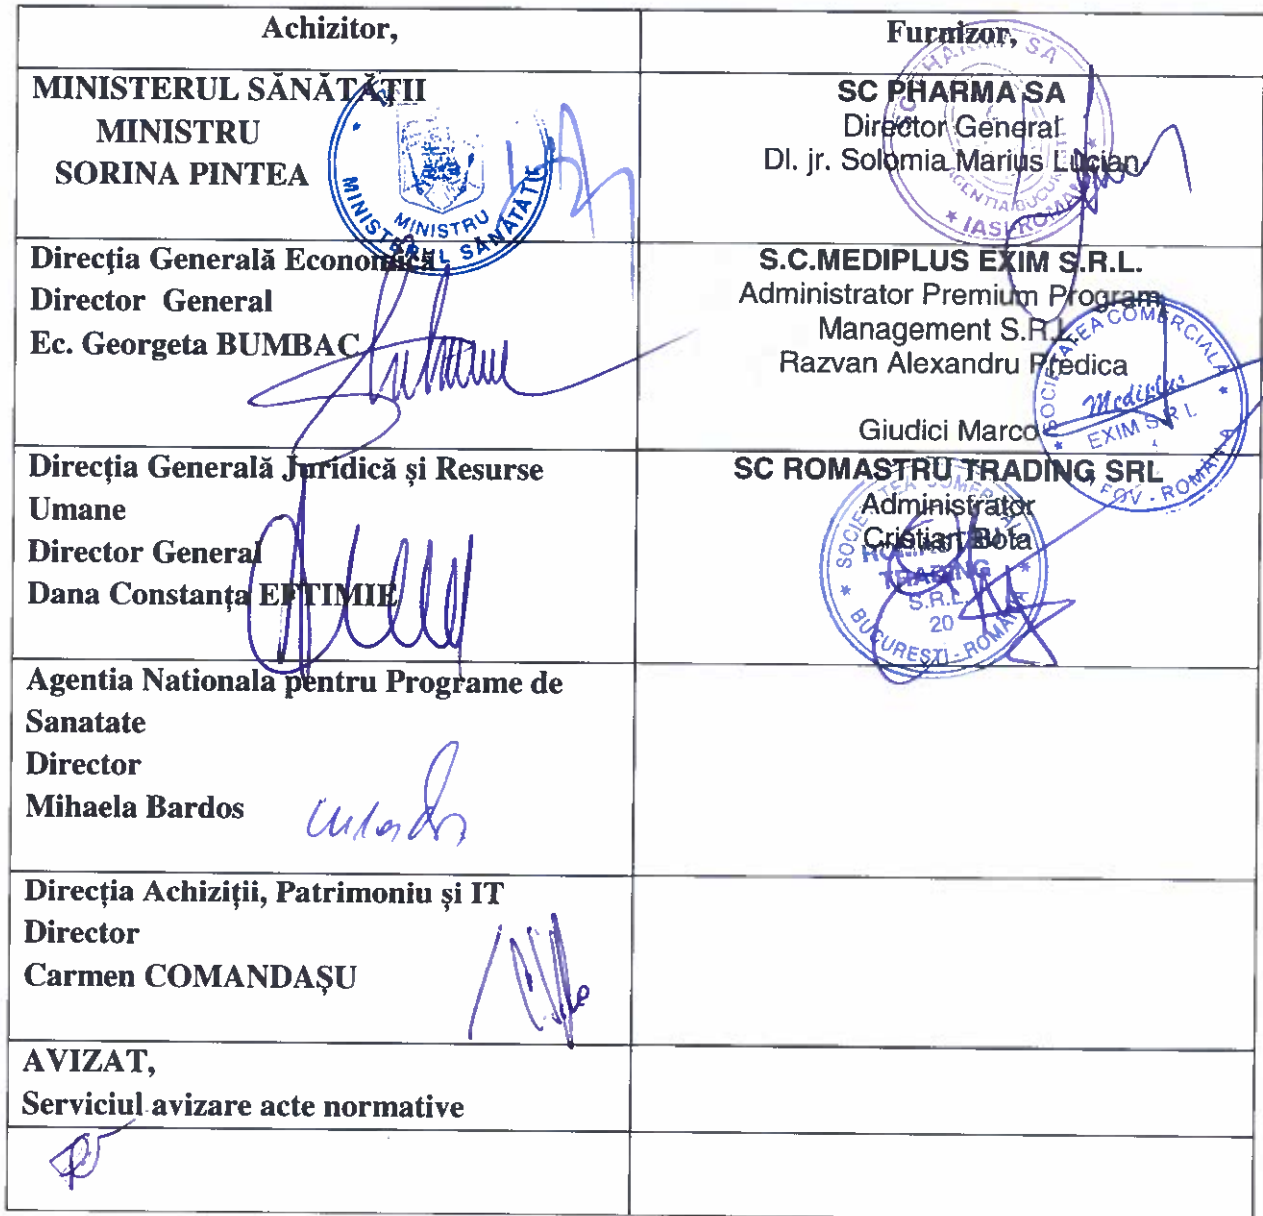 Achizitor,
Furnizor,
MINISTERUL SĂNĂTĂȚII
MINISTRU
SORINA PINTEA
MINISTRU
MINISTERUL SĂNĂTĂȚII
SC PHARMA SA
Director General
Dl. jr. Solomia Marius Lucian
IASI-ROMANIA
Direcția Generală Economică
Director General
Ec. Georgeta BUMBAC
S.C.MEDIPLUS EXIM S.R.L.
Administrator Premium Program
Management S.R.L.
Razvan Alexandru Predica
Giudici Marco
SOCIETATEA COMERCIALĂ
Mediplus
EXIM S.R.L.
Direcția Generală Juridică și Resurse
Umane
Director General
Dana Constanța EFTIMIE
SC ROMASTRU TRADING SRL
Administrator
Cristian Bota
SOCIETATEA COMERCIALĂ
TRADING
S.R.L.
20
BUCUREȘTI - ROMÂNIA
Agentia Nationala pentru Programe de
Sanatate
Director
Mihaela Bardos
Direcția Achiziții, Patrimoniu și IT
Director
Carmen COMANDAȘU
AVIZAT,
Serviciul avizare acte normative